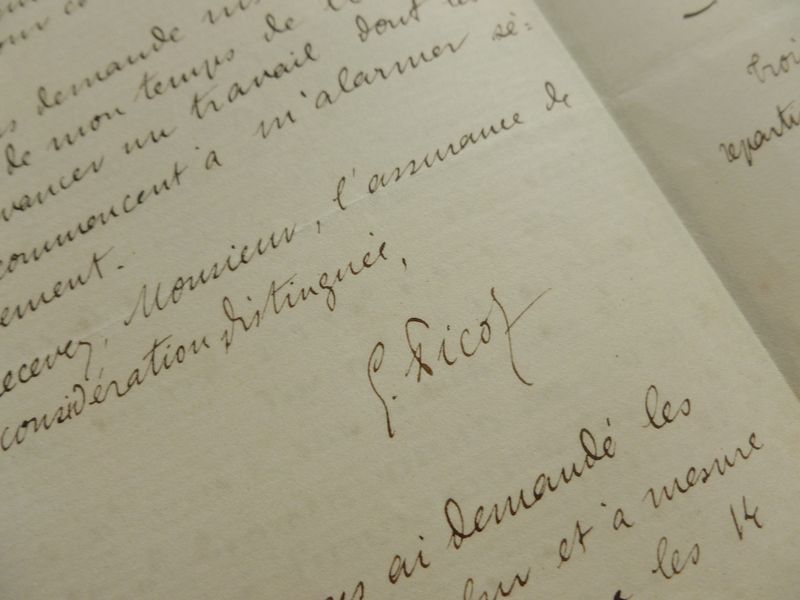 demande
de mon temps de
vancer un travail dont les
commencent à m'alarmer sé=
ement.
ecevez, Monsieur, l'assurance de
considération distinguée,
G. Picot
ai demandé les
et à mesure
les 14
répartis